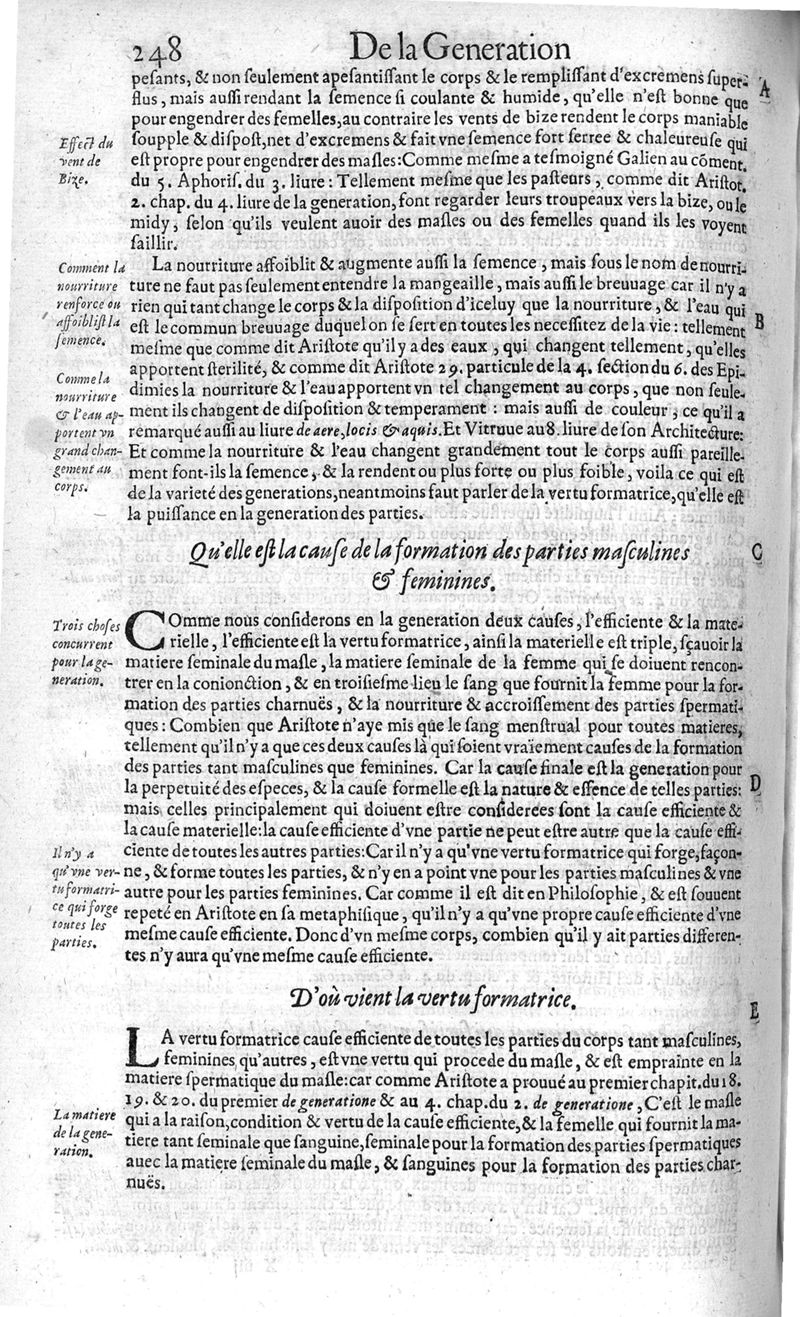 248
De la Generation
peſants, & non ſeulement apeſantiſſant le corps & le rempliſſant d'excremens ſuper-
flus, mais auſſi rendant la ſemence ſi coulante & humide, qu'elle n'eſt bonne que
pour engendrer des femelles, au contraire les vents de bize rendent le corps maniable
ſoupple & diſpoſt, net d'excremens & fait vne ſemence fort ſerree & chaleureuſe qui
eſt propre pour engendrer des maſles: Comme meſme a teſmoigné Galien au cōment.
du 5. Aphoriſ. du 3. liure: Tellement meſme que les paſteurs, comme dit Ariſtot.
2. chap. du 4. liure de la generation, font regarder leurs troupeaux vers la bize, ou le
midy, ſelon qu'ils veulent auoir des maſles ou des femelles quand ils les voyent
ſaillir.
A
Effect du
vent de
Bize.
La nourriture affoiblit & augmente auſſi la ſemence, mais ſous le nom de nourri-
ture ne faut pas ſeulement entendre la mangeaille, mais auſſi le breuuage car il n'y a
rien qui tant change le corps & la diſpoſition d'iceluy que la nourriture, & l'eau qui
eſt le commun breuuage duquel on ſe ſert en toutes les neceſſitez de la vie: tellement
meſme que comme dit Ariſtote qu'il y a des eaux, qui changent tellement, qu'elles
apportent ſterilité, & comme dit Ariſtote 29. particule de la 4. ſection du 6. des Epi-
dimies la nourriture & l'eau apportent vn tel changement au corps, que non ſeule-
ment ils changent de diſpoſition & temperament: mais auſſi de couleur, ce qu'il a
remarqué auſſi au liure de aere, locis & aquis. Et Vitruue au 8. liure de ſon Architecture:
Et comme la nourriture & l'eau changent grandement tout le corps auſſi pareille-
ment font-ils la ſemence, & la rendent ou plus forte ou plus foible, voila ce qui eſt
de la varieté des generations, neantmoins faut parler de la vertu formatrice, qu'elle eſt
la puiſſance en la generation des parties.
B
Comment la
nourriture
renforce ou
affoibliſt la
ſemence.
Comme la
nourriture
& l'eau ap-
portent vn
grand chan-
gement au
corps.
Qu'elle eſt la cauſe de la formation des parties maſculines
& feminines.
C
COmme nous conſiderons en la generation deux cauſes, l'efficiente & la mate-
rielle, l'efficiente eſt la vertu formatrice, ainſi la materielle eſt triple, ſçauoir la
matiere ſeminale du maſle, la matiere ſeminale de la femme qui ſe doiuent rencon-
trer en la conionction, & en troiſieſme lieu le ſang que fournit la femme pour la for-
mation des parties charnuës, & la nourriture & accroiſſement des parties ſpermati-
ques: Combien que Ariſtote n'aye mis que le ſang menſtrual pour toutes matieres,
tellement qu'il n'y a que ces deux cauſes là qui ſoient vraïement cauſes de la formation
des parties tant maſculines que feminines. Car la cauſe finale eſt la generation pour
la perpetuité des eſpeces, & la cauſe formelle eſt la nature & eſſence de telles parties:
mais celles principalement qui doiuent eſtre conſiderees ſont la cauſe efficiente &
la cauſe materielle: la cauſe efficiente d'vne partie ne peut eſtre autre que la cauſe effi-
ciente de toutes les autres parties: Car il n'y a qu'vne vertu formatrice qui forge, façon-
ne, & forme toutes les parties, & n'y en a point vne pour les parties maſculines & vne
autre pour les parties feminines. Car comme il eſt dit en Philoſophie, & eſt ſouuent
repeté en Ariſtote en ſa metaphiſique, qu'il n'y a qu'vne propre cauſe efficiente d'vne
meſme cauſe efficiente. Donc d'vn meſme corps, combien qu'il y ait parties differen-
tes n'y aura qu'vne meſme cauſe efficiente.
D
Trois choſes
concurrent
pour la ge-
neration.
Il n'y a
qu'vne ver-
tu formatri-
ce qui forge
toutes les
parties.
D'où vient la vertu formatrice.
E
LA vertu formatrice cauſe efficiente de toutes les parties du corps tant maſculines,
feminines qu'autres, eſt vne vertu qui procede du maſle, & eſt emprainte en la
matiere ſpermatique du maſle: car comme Ariſtote a prouué au premier chapit. du 18.
19. & 20. du premier de generatione & au 4. chap. du 2. de generatione, C'eſt le maſle
qui a la raiſon, condition & vertu de la cauſe efficiente, & la femelle qui fournit la ma-
tiere tant ſeminale que ſanguine, ſeminale pour la formation des parties ſpermatiques
auec la matiere ſeminale du maſle, & ſanguines pour la formation des parties char-
nuës.
La matiere
de la gene-
ration.